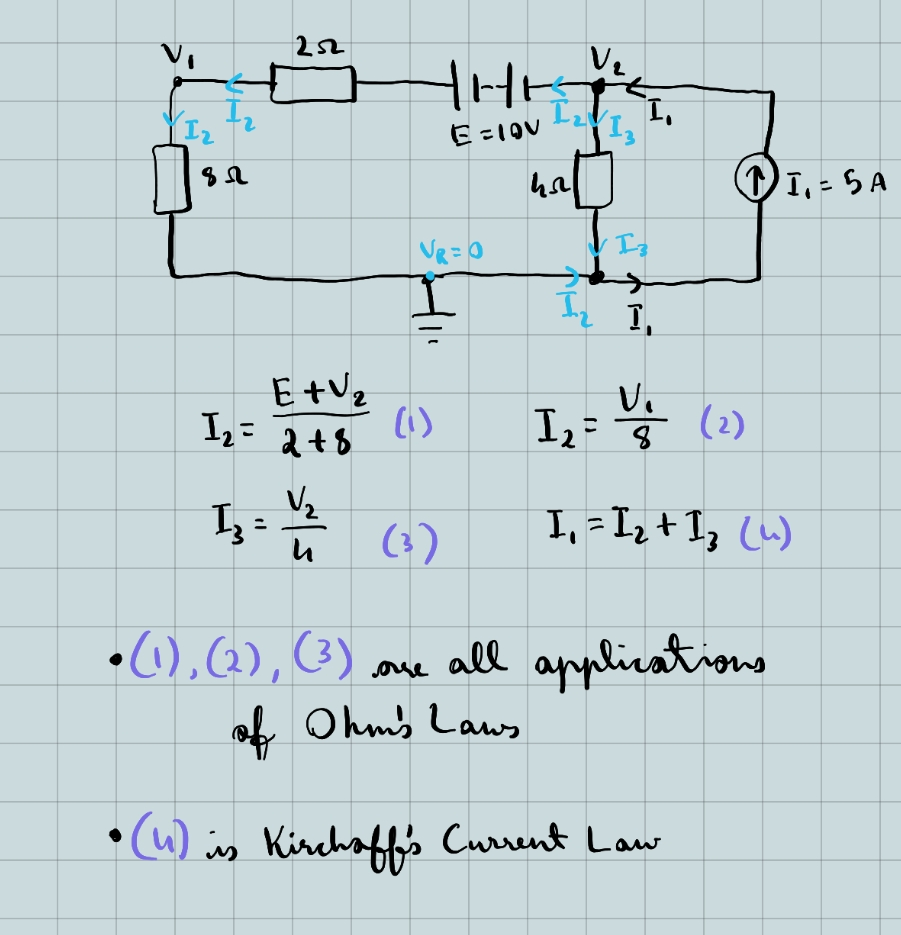 V₁ 2Ω V₂
I₂ I₂ I₁
I₂ E = 10V I₃
8Ω 4Ω I₁ = 5 A
V_R = 0 I₃
I₂ I₁
I₂ = (E + V₂)/(2 + 8) (1) I₂ = V₁/8 (2)
I₃ = V₂/4 (3) I₁ = I₂ + I₃ (4)
• (1), (2), (3) are all applications
of Ohm's Laws
• (4) is Kirchaff's Current Law